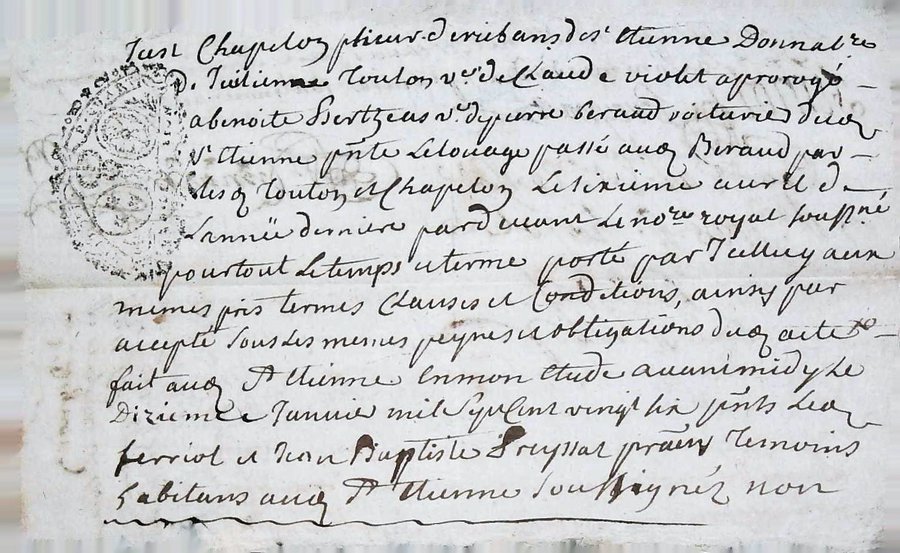 Just Chapelon plieur de rubans de St Etienne Donnatre
De Jullienne Touton ve de Claude violet a prorogé
a benoite Bertheas ve de pierre beraud voiturier dud
St Etienne pnte Le Louage passé aud Beraud par
lesd Touton et Chapelon Le sixieme avril de
L'année derniere pardevant Le nore royal soussné
pour tout Le temps et terme porté par Icelluy aux
memes prix termes Clauses et Conditions, ainsy par
accepté sous Les memes peynes et obligations dud acte
fait aud St Etienne En mon Etude avant midy Le
Dixieme Janvier mil sept Cent vingt six pnts
ferriol et Jean Baptiste Temoins
habitans aud St Etienne soussignéz non